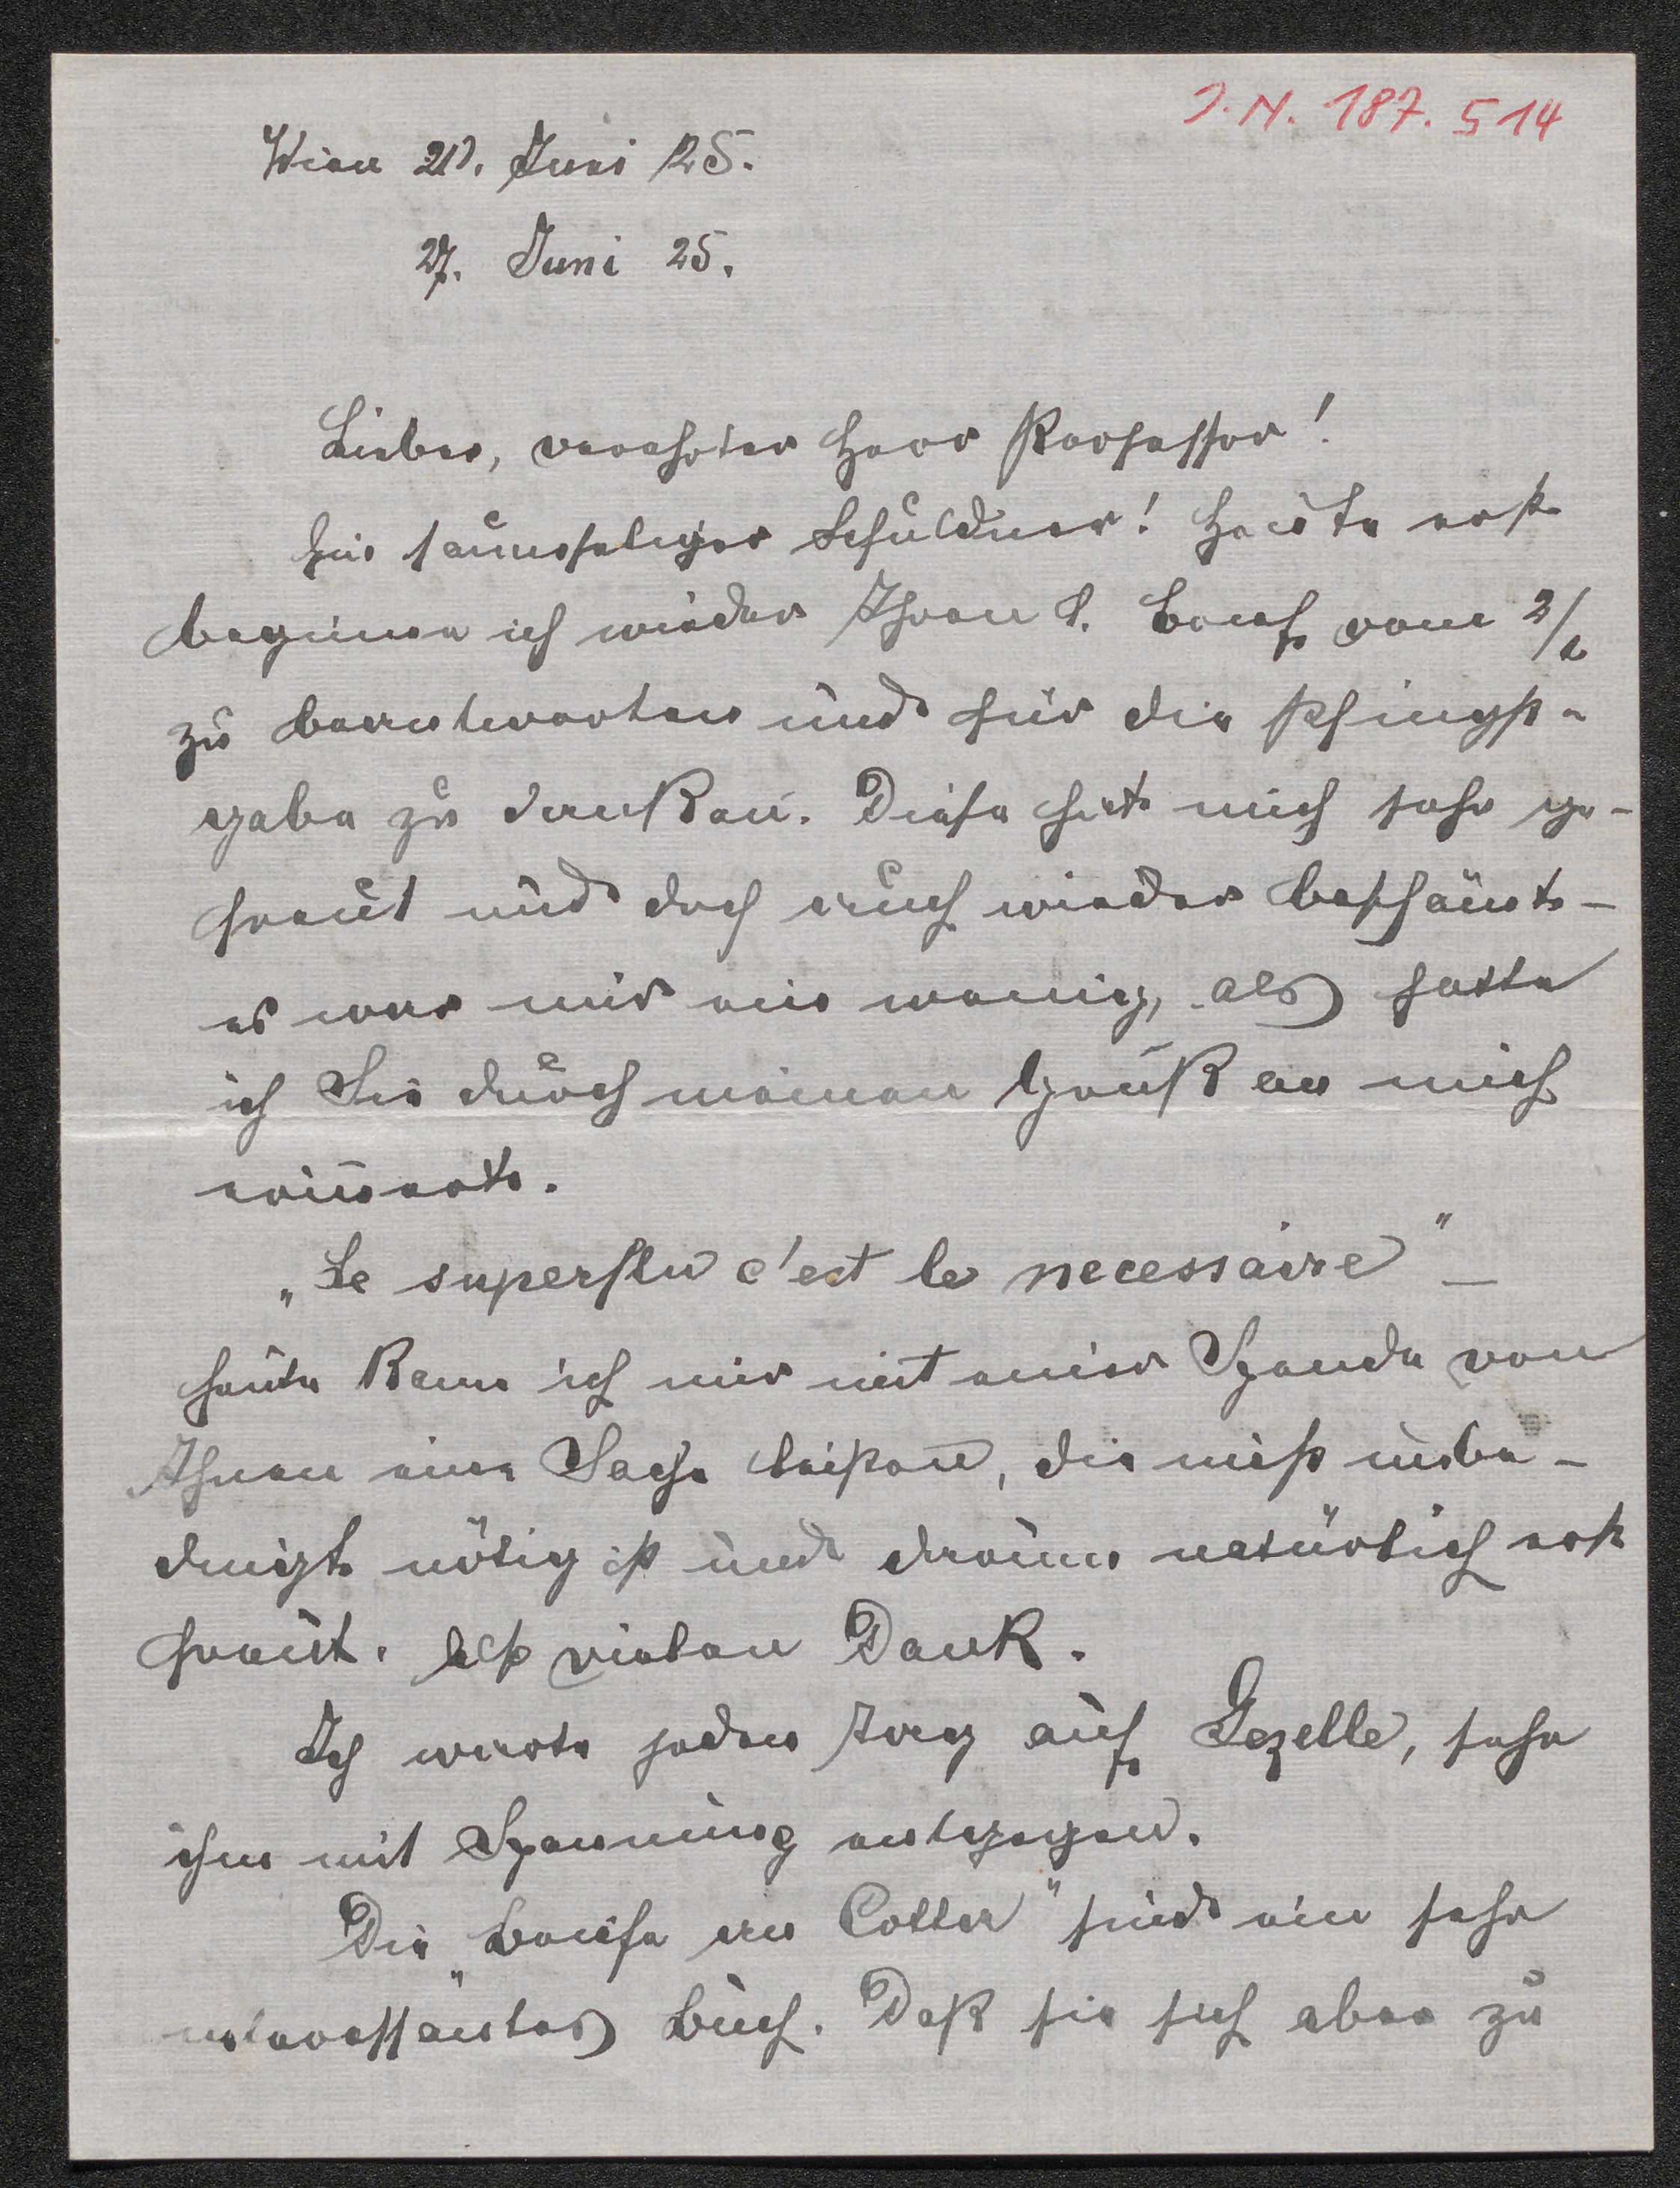 J. N. 187.514
Wien 27. Juni 25.
27. Juni 25.
Lieber, verehrter Herr Professor!
Ein saumseliger Schuldner! Heute erst
beginne ich wieder Ihren l. Brief vom 2/6
zu beantworten und für die Pfingst-
gabe zu danken. Diese hat mich sehr ge-
freut und doch auch wieder beschämt –
es war mir ein wenig, als hätte
ich Sie durch meinen Gruß an mich
erinnert.
„Le superflu c'est le necessaire" –
heute kann ich mir mit einer Spende von
Ihnen eine Sache leisten, die nicht unbe-
dingt nötig ist und darum natürlich erst
freut. Also vielen Dank.
Ich warte jeden Tag auf Gezelle, sehe
ihm mit Spannung entgegen.
Die „Briefe an Cotta" sind ein sehr
interessantes Buch. Daß sie sich aber zu